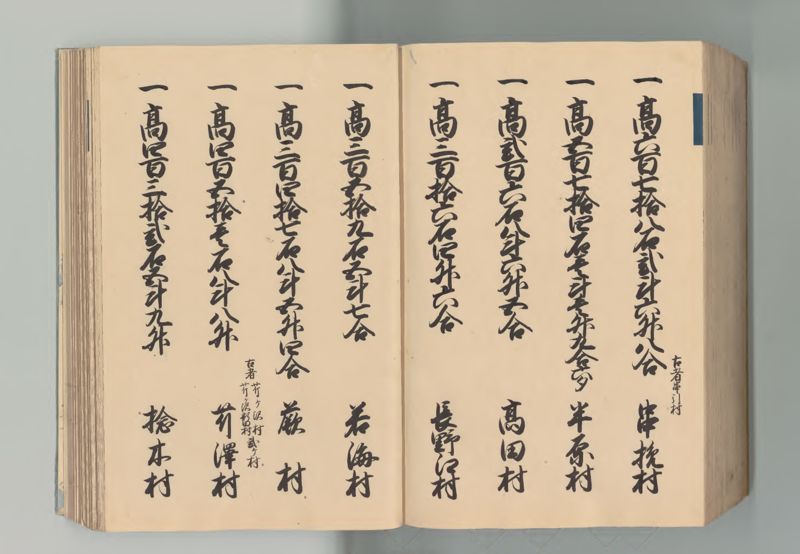 古者串引村
一高六百七拾八石弐斗六升八合 串挽村
一高五百七拾四石壱斗壱升九合四夕 半原村
一高弐百六石八斗六升五合 高田村
一高三百拾六石四升六合 長野江村
一高三百五拾九石五斗七合 若海村
一高三百四拾七石八斗五升四合 蕨村
古者 芹ヶ沢村
芹ヶ沢新田村 弐ヶ村
一高四百五拾壱石八斗八升 芹澤村
一高四百三拾弐石五斗九升 捻木村